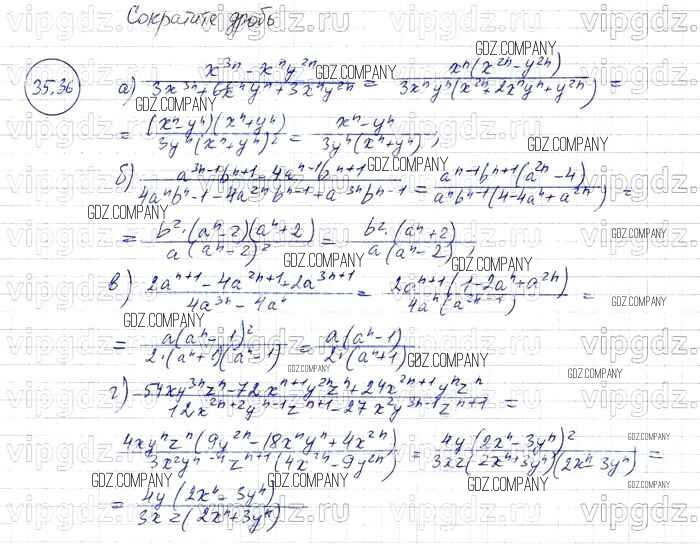 Сократите дробь
35.36
а) (x^{3n} - x^n y^{2n}) / (3x^{3n} + 6x^n y^n + 3x^n y^{2n}) = x^n(x^{2n} - y^{2n}) / 3x^n y^n(x^{2n} + 2x^n y^n + y^{2n}) =
= (x^n - y^n)(x^n + y^n) / 3y^n(x^n + y^n)^2 = (x^n - y^n) / 3y^n(x^n + y^n) ;
б) (a^{3n-1} b^{n+1} - 4a^{n-1} b^{n+1}) / (4a^n b^{n-1} - 4a^{2n} b^{n-1} + a^{3n} b^{n-1}) = a^{n-1} b^{n+1}(a^{2n} - 4) / a^n b^{n-1}(4 - 4a^n + a^{2n}) =
= b^2·(a^n - 2)(a^n + 2) / a(a^n - 2)^2 = b^2·(a^n + 2) / a(a^n - 2) ;
в) (2a^{n+1} - 4a^{2n+1} + 2a^{3n+1}) / (4a^{3n} - 4a^n) = 2a^{n+1}(1 - 2a^n + a^{2n}) / 4a^n(a^{2n} - 1) =
= a(a^n - 1)^2 / 2·(a^n + 1)(a^n - 1) = a(a^n - 1) / 2·(a^n + 1)
г) (54xy^{3n} z^n - 72x^{n+1} y^{2n} z^n + 24x^{2n+1} y^n z^n) / (12x^{2n+2} y^{n-1} z^{n+1} - 27x^2 y^{3n-1} z^{n+1}) =
4xy^n z^n(9y^{2n} - 18x^n y^n + 4x^{2n}) / 3x^2 y^{n-1} z^{n+1}(4x^{2n} - 9y^{2n}) = 4y(2x^n - 3y^n)^2 / 3xz(2x^n + 3y^n)(2x^n - 3y^n) =
= 4y(2x^n - 3y^n) / 3xz(2x^n + 3y^n)
GDZ.COMPANY
vipgdz.ru